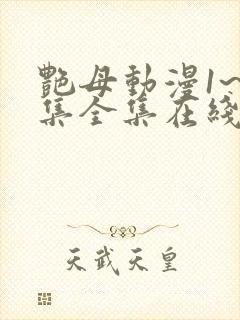 艷母動漫1~
集全集在綫
天武天皇